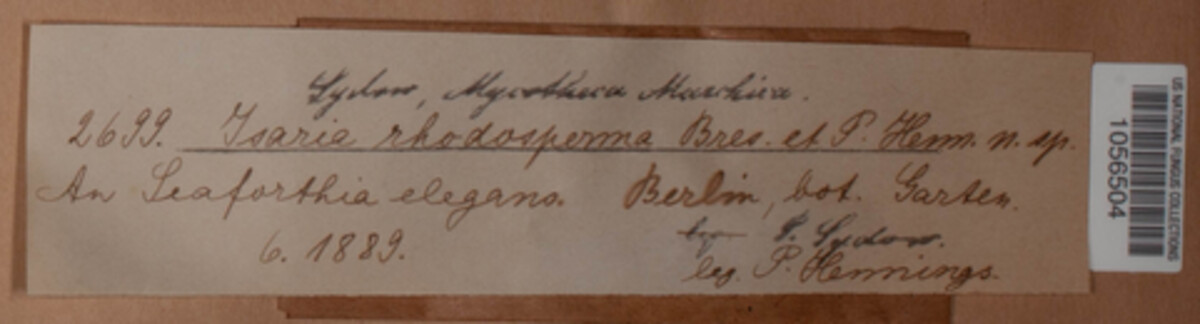 Sydow, Mycotheca Marchica.
2699. Isaria rhodosperma Bres. et P. Henn. n. sp.
An Seaforthia elegans. Berlin, bot. Garten.
6. 1889.
leg. P. Sydow.
leg. P. Hennings.
US NATIONAL FUNGUS COLLECTIONS
1056504